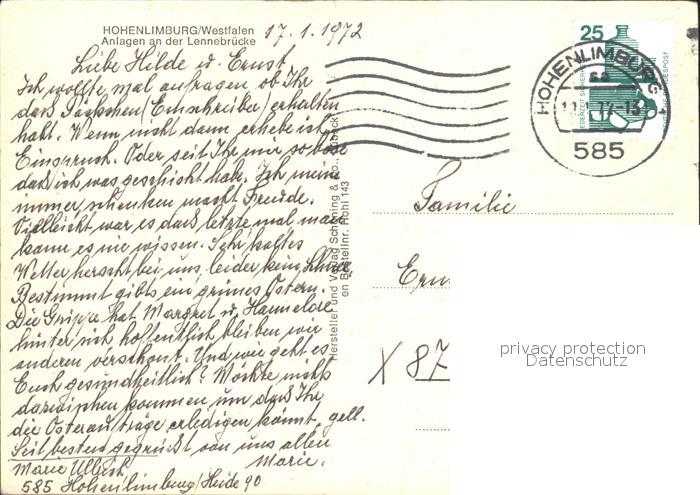 HOHENLIMBURG/Westfalen
Anlagen an der Lennebrücke
17.1.1972
Liebe Hilde u. Ernst
Ich wollte mal anfragen ob Ihr
das Päckchen (Einschreiben) erhalten
habt. Wenn nicht dann erhebe ich
Einspruch. Oder seit Ihr mir so böse
daß ich was geschickt habe. Ich meine
immer schenken macht Freude.
Vielleicht war es das letzte mal man
kann es nie wissen. Sehr kaltes
Wetter herscht bei uns leider kein Schnee
Bestimmt gibts ein grünes Ostern.
Die Grippe hat Margret u. Hannelore
hinter sich hoffentlich bleiben wir
anderen verschont. Und wie geht es
Euch gesundheitlich? Möchte nichts
dazwischen kommen um daß Ihr
die Osteraufträge erledigen könnt, gell.
Seit bestens gegrüsst von uns allen
Marie.
Marie
585 Hohenlimburg/Heide 90
Hersteller und Verlag Schöning & Co., Lübeck
Bestellnr. Hohl 143
25
HOHENLIMBURG
585
Familie
X 87
privacy protection
Datenschutz